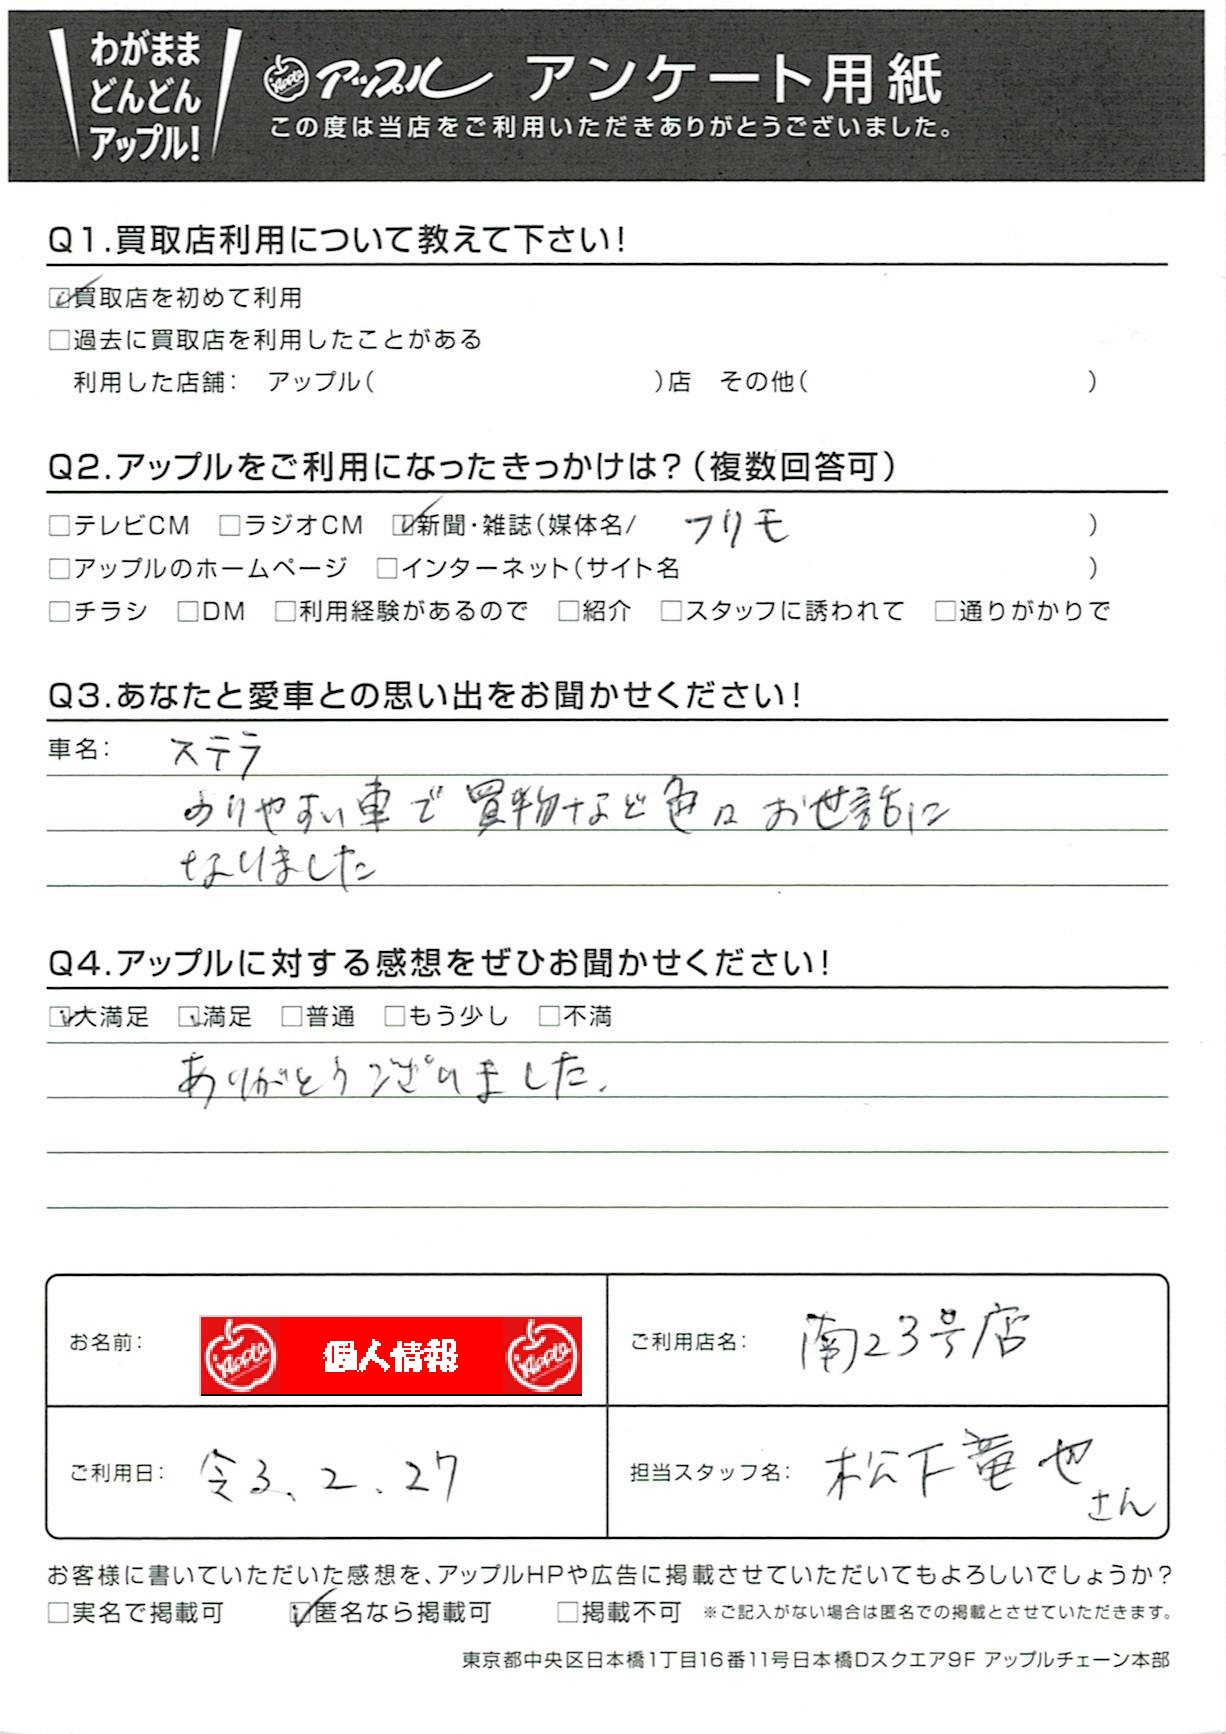 わがまま
どんどん
アップル!
Apple アップル アンケート用紙
この度は当店をご利用いただきありがとうございました。
Q1.買取店利用について教えて下さい!
☑買取店を初めて利用
□過去に買取店を利用したことがある
利用した店舗: アップル( )店 その他( )
Q2.アップルをご利用になったきっかけは?(複数回答可)
□テレビCM □ラジオCM ☑新聞・雑誌(媒体名/ フリモ )
□アップルのホームページ □インターネット(サイト名 )
□チラシ □DM □利用経験があるので □紹介 □スタッフに誘われて □通りがかりで
Q3.あなたと愛車との思い出をお聞かせください!
車名: ステラ
のりやすい車で買物など色々お世話に
なりました
Q4.アップルに対する感想をぜひお聞かせください!
☑大満足 ☑満足 □普通 □もう少し □不満
ありがとうございました。
お名前: Apple 個人情報 Apple
ご利用店名: 南23号店
ご利用日: 令3.2.27
担当スタッフ名: 松下竜也さん
お客様に書いていただいた感想を、アップルHPや広告に掲載させていただいてもよろしいでしょうか?
□実名で掲載可 ☑匿名なら掲載可 □掲載不可 ※ご記入がない場合は匿名での掲載とさせていただきます。
東京都中央区日本橋1丁目16番11号日本橋Dスクエア9F アップルチェーン本部